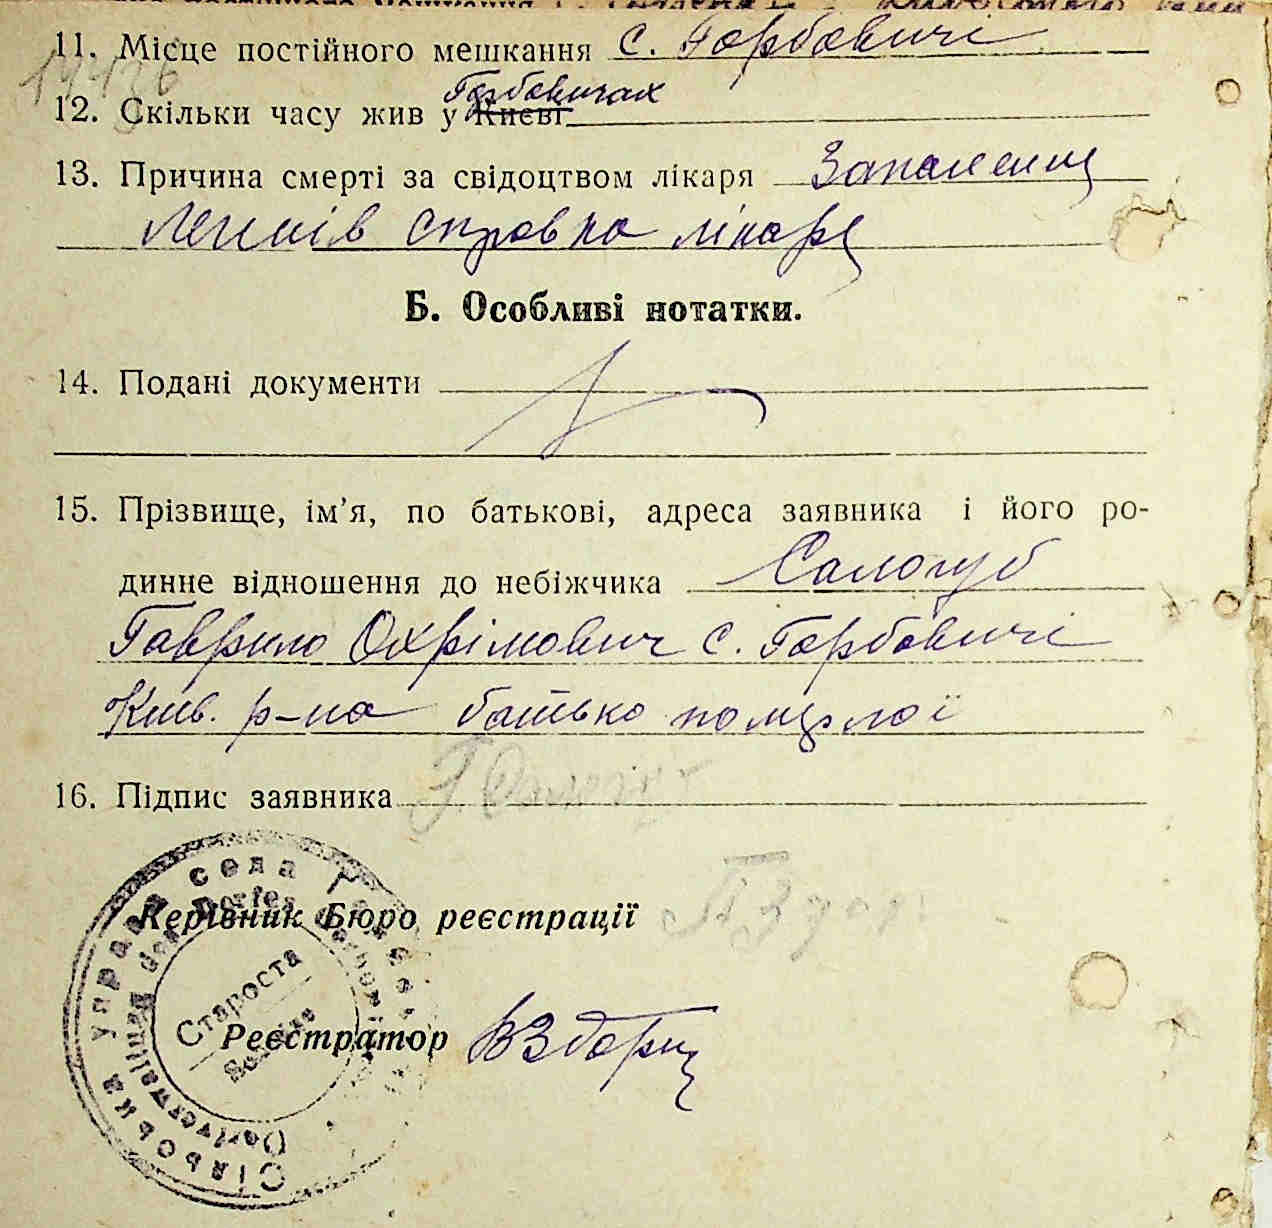 11. Місце постійного мешкання с. Горбовичі
12. Скільки часу жив у Києві Горбовичах
13. Причина смерті за свідоцтвом лікаря Запалення
легенів справка лікаря
Б. Особливі нотатки.
14. Подані документи
15. Прізвище, ім'я, по батькові, адреса заявника і його ро-
динне відношення до небіжчика Сологуб
Гаврило Охрімович с. Горбовичі
Киів. р-на батько померлої
16. Підпис заявника
Керівник Бюро реєстрації
Реєстратор
Сільська управа села
Dorfverwaltung des Dorfes
Староста